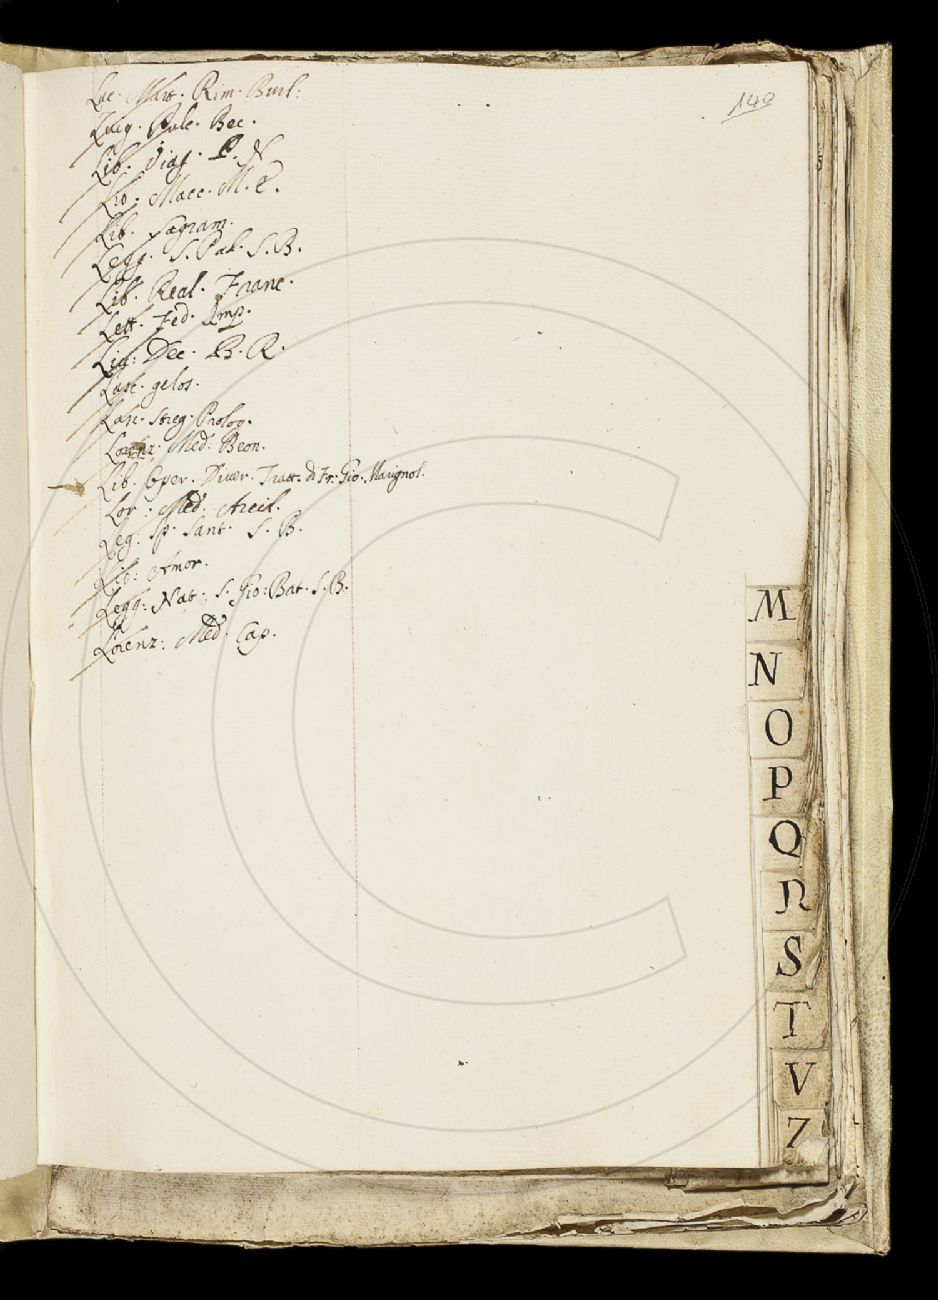 149
Luc. Mart. Rim. Burl:
Luig. Pulc. Bec.
Lib. Viag. P. N
Lib: Macc. M. P.
Lib. Sagram.
Legg. S. Pal. S. B.
Lib. Real. Franc.
Lett. Fed. Imp.
Liv: Dec. P. R.
Lasc. gelos.
Lasc. Streg. Prolog.
Lorenz: Med: Beon.
Lib. Oper. Diver. Tratt. di Fr: Gio. Marignol.
Lor: Med. Arcil.
Leg: Sp. Sant. S. B.
Lib: Amor.
Legg: Nat: S. Gio: Bat. S. B.
Lorenz: Med. Cap.
M
N
O
P
Q
R
S
T
V
Z